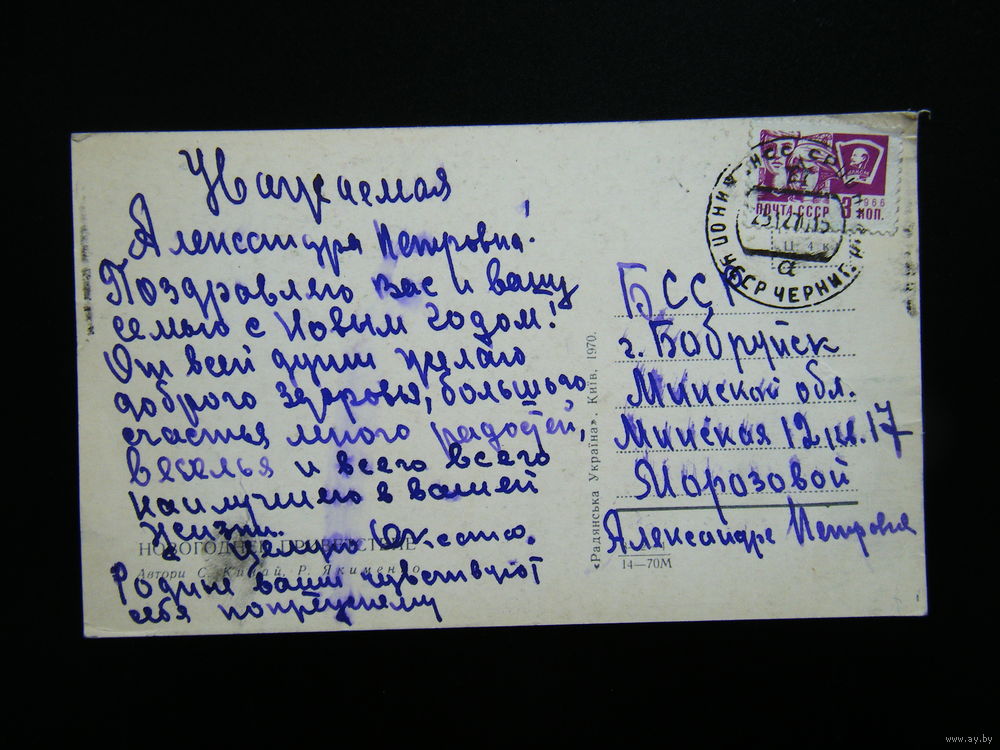 Уважаемая
Александра Петровна!
Поздравляю вас и вашу
семью с Новым годом!
От всей души желаю
доброго здоровья, большого
счастья много радостей,
веселья и всего всего
наилучшего в вашей
жизни.
НОВОГОДНЕЕ ПРИВЕТСТВИЕ
Автори С. Р. Якименко
Родные ваши чувствуют
себя
«Радянська Україна». Київ, 1970.
14—70М
ПОЧТА СССР
1966
3 КОП.
УССР ЧЕРНИГ
БССР
г. Бобруйск
Минской обл.
Минская 12 кв. 17
Морозовой
Александре Петровне
www.ay.by